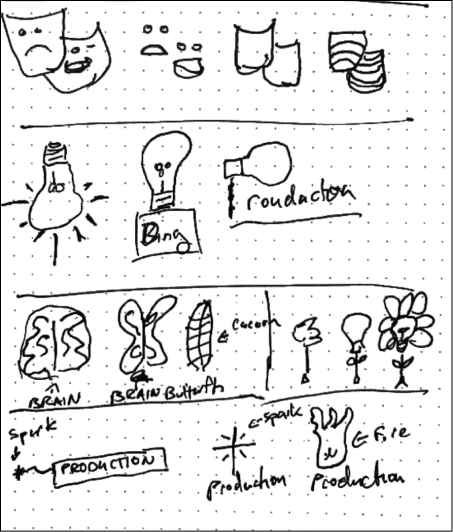 Bing
Production
Cacoon
BRAIN
BRAIN Butterfly
Spark
PRODUCTION
Spark
Production
Fire
Production